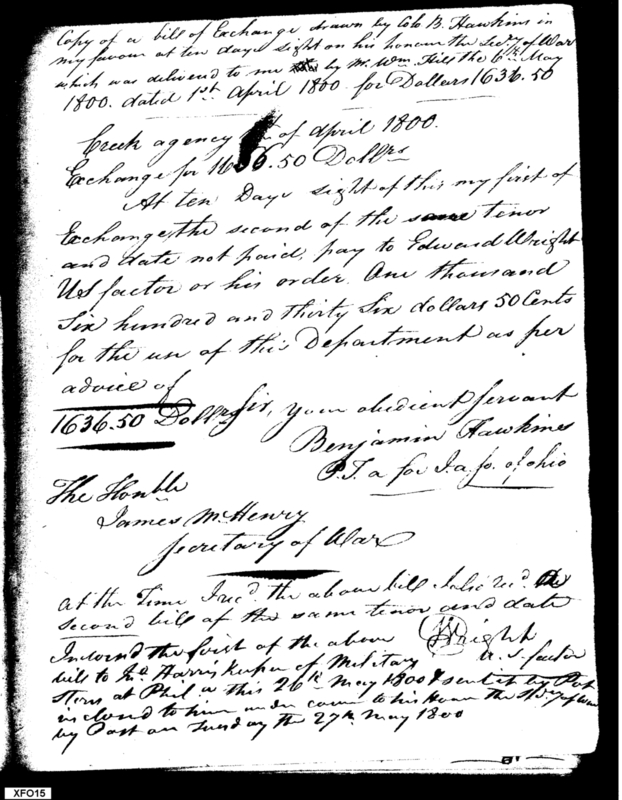 Copy of a bill of Exchange drawn by Colo B. Hawkins in
my favour at ten days sight on his honour the Secy of War
which was delivered to me by Mr. Wm. Hill the 6th May
1800. dated 1st April 1800 for Dollars 1636.50
Creek agency of April 1800.
Exchange for 1636.50 Dollrs
At ten Days sight of this my first of
Exchange, the second of the same tenor
and date not paid, pay to Edward Wright
US factor or his order One thousand
Six hundred and thirty Six dollars 50 Cents
for the use of this Department as per
advice of
1636.50 Dollrs Sir, your obedient Servant
Benjamin Hawkins
P. T. a for I. a. So. of ohio
The Honble
James McHenry
Secretary of War
At the Time I recd. the above bill I also recd. the
second bill of the same tenor and date
Wright
U. S. factor
Indorsd the first of the above
bill to Jno. Harris Keeper of Military
Stores at Phil a this 26th May 1800 & sent it by Post
inclosd to him under cover to his Honr the Secy of War
by Post on Tuesday the 27th May 1800
XFO15